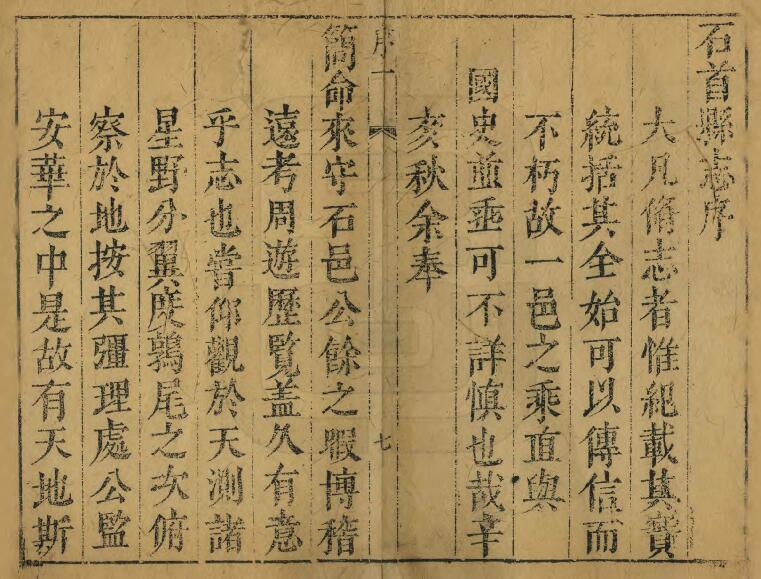 石首縣志序
大凡脩志者惟紀載其實
統括其全始可以傳信而
不朽故一邑之乘直與
國史並垂可不詳慎也哉辛
亥秋余奉
序一
七
簡命來守石邑公餘之暇博稽
遠考周遊歷覽蓋久有意
乎志也嘗仰觀於天測諸
星野分翼度鶉尾之次俯
察於地按其彊理處公監
安華之中是故有天地斯